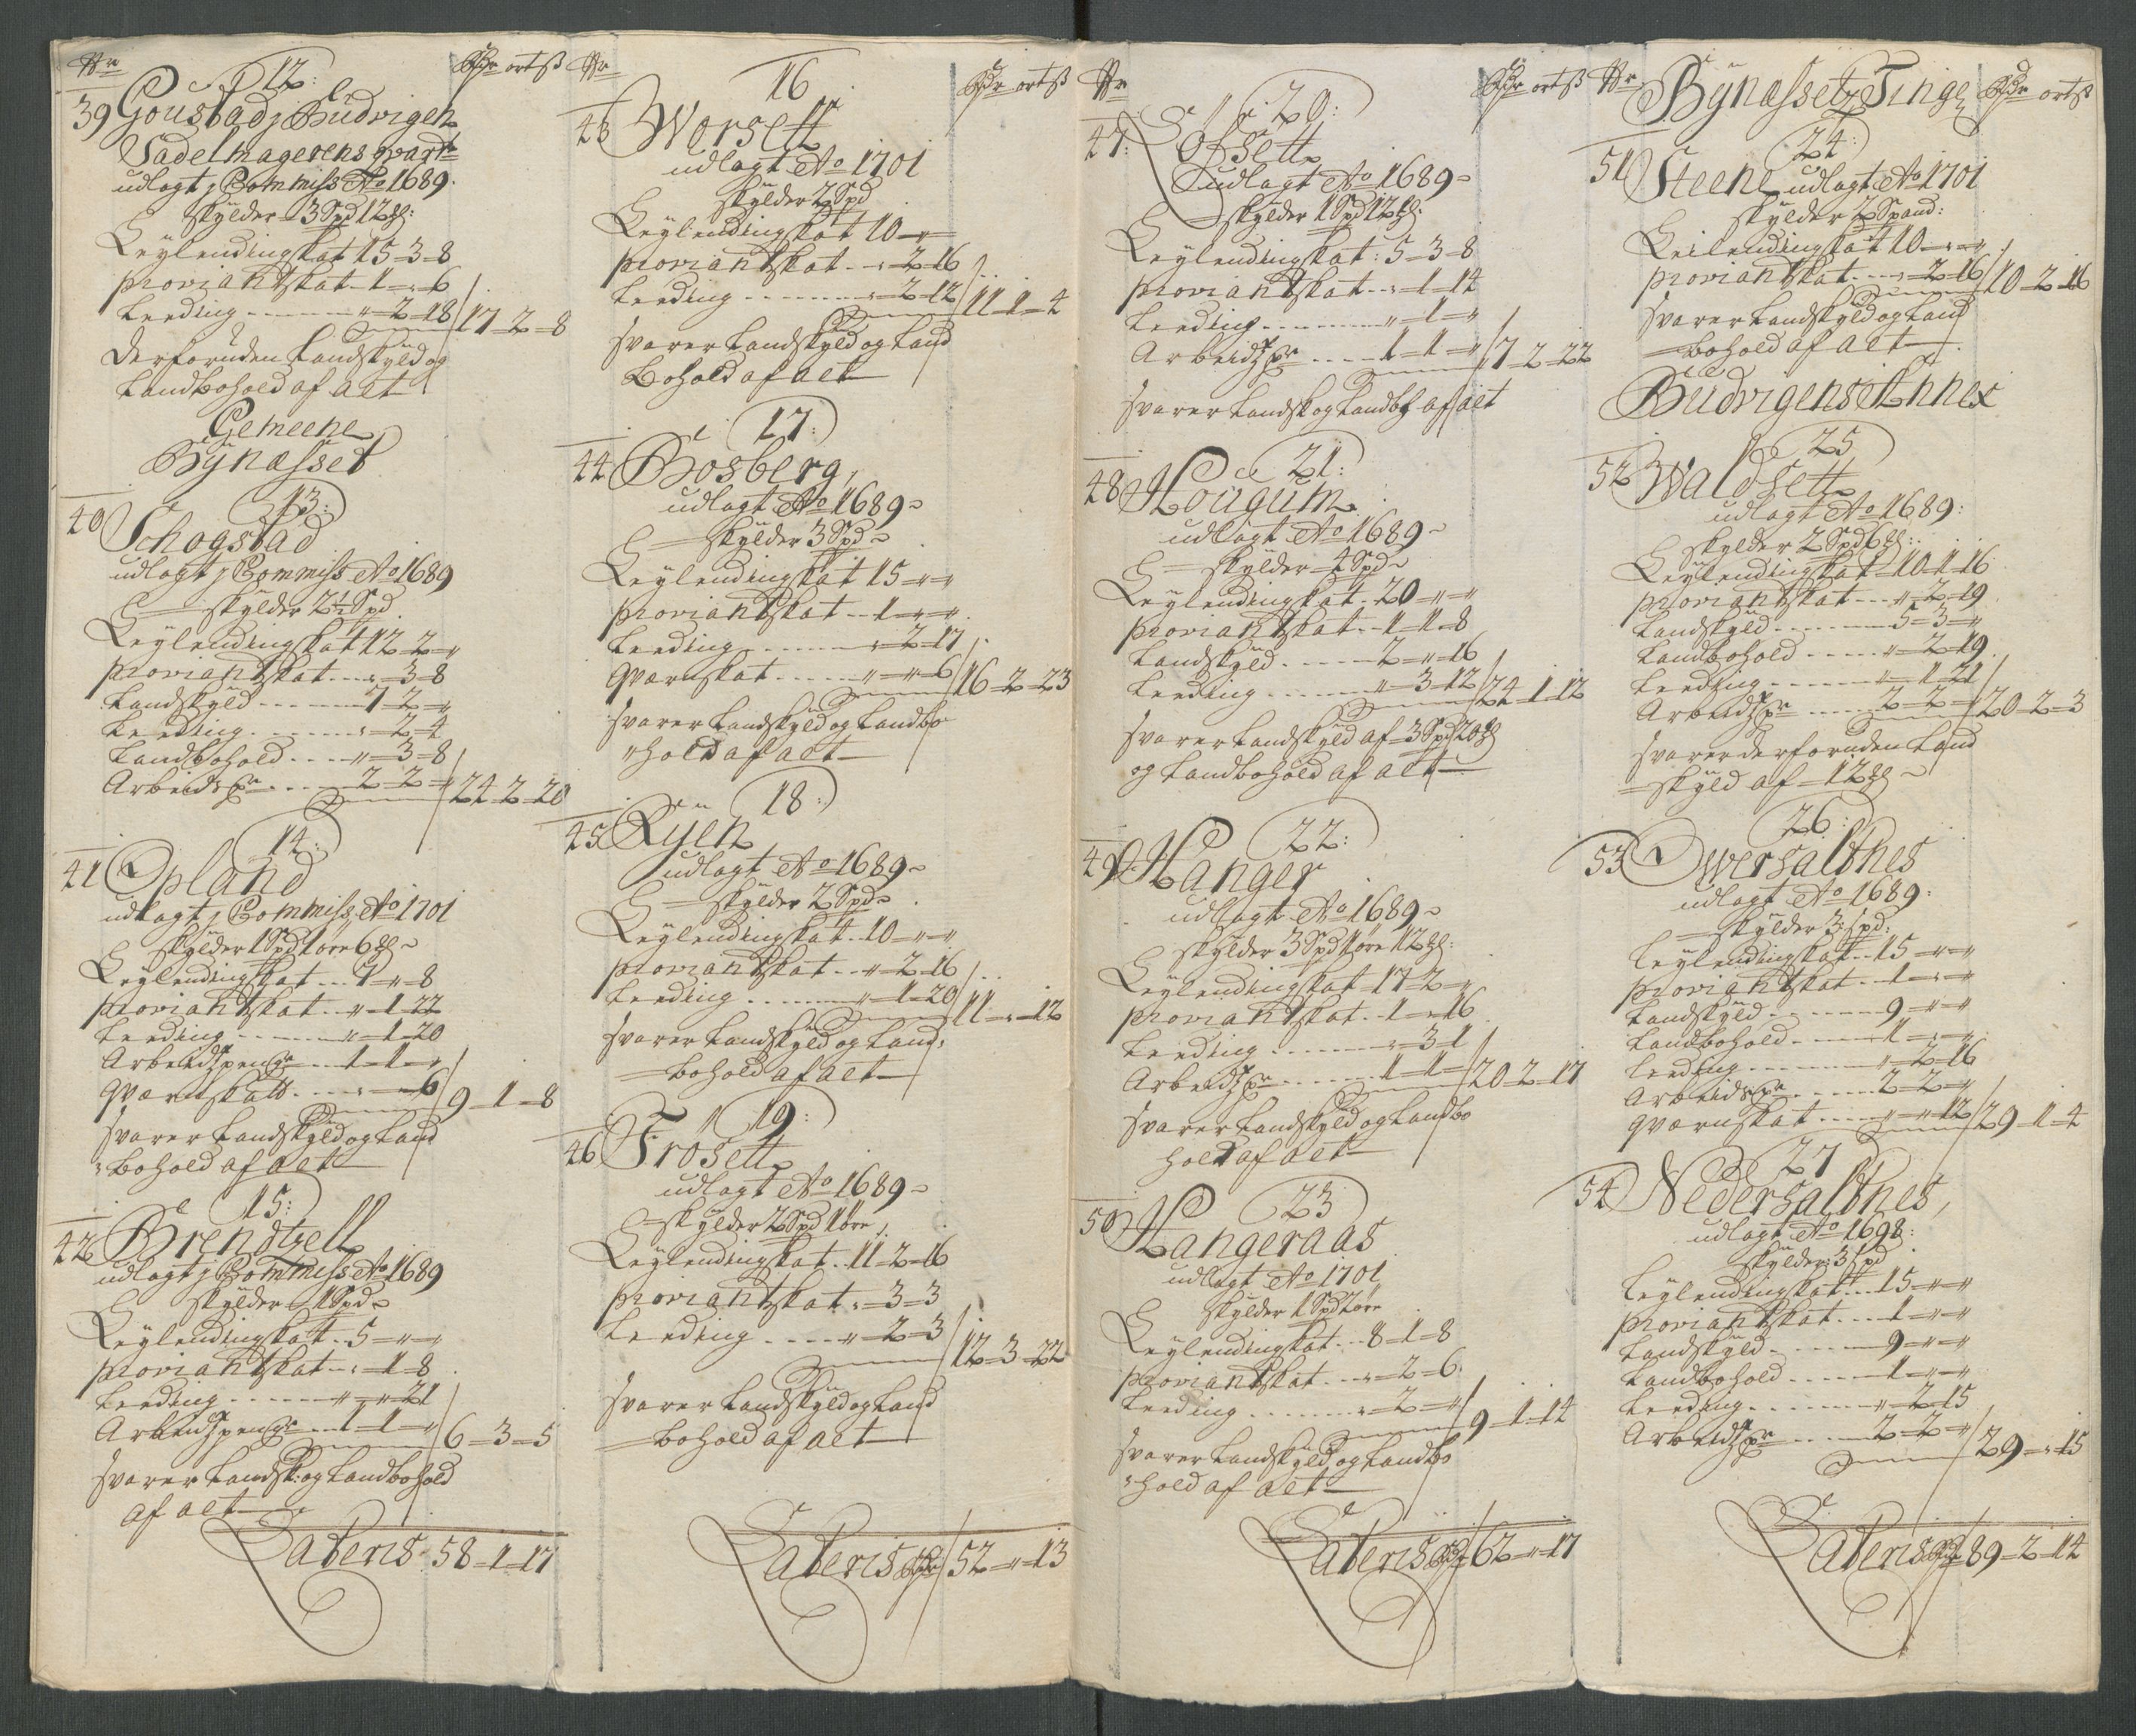 Nr
Rdr ort ß
12:
39 Goustad, Büdvigen
Sadelmagerens qvartr
udlagt j Commiss Ao 1689.
skylder 3 Spd 12 ℔:
Leylendingskat 15-3-8
Proviantskat 1-„-6
Leeding „-2-18 / 17-2-8
Derforuden Landskyld og
Landbohold af alt
Gemeene
Bynæsset
13:
40 Schogstad
udlagt j Commiss Ao 1689
skylder 2½ Spd
Leylendingskat 12-2-„
Proviantskat „-3-8
Landskyld 7-2-„
Leeding „-2-4
Landbohold „-3-8
Arbeids pr 2-2-„ / 24-2-20
14:
41 Opland
udlagt j Commiss Ao 1701
skylder 1 Spd 1 öre 6 ℔
Leylendingskat 7-„-8
Proviantskat „-1-22
Leeding „-1-20
Arbeidspenge 1-1-„
Qværnskatt „-„-6 / 9-1-8
svarer Landskyld og Land
bohold af alt
15:
42 Brendtzell
udlagt j Commiss Ao 1689
skylder 1 Spd
Leylendingskat 5-„-„
Proviantskat „-1-8
Leeding „-„-21
Arbeidspenge 1-1-„ / 6-3-5
svarer Landsk: og Landbohold
af alt
Lateris 58-1-17
Nr
Rdr ort ß
16
43 Worsett
udlagt Ao 1701
skylder 2 Spd
Leylendingskat 10-„-
Proviantskat „-2-16
Leeding „-2-12 / 11-1-4
svarer Landskyld og Land
bohold af alt
17:
44 Bosberg,
udlagt Ao 1689
skylder 3 Spd
Leylendingskat 15-„-„
Proviantskat 1-„-„
Leeding „-2-17
Qværnskat „-„-6 / 16-2-23
svarer Landskyld og Landbo
hold af alt
18:
45 Ryen
udlagt Ao 1689
skylder 2 Spd
Leylendingskat 10-„-„
Proviantskat „-2-16
Leeding „-1-20 / 11-„-12
svarer Landskyld og Land,
bohold af alt
19:
46 Frosett
udlagt Ao 1689
skylder 2 Spd 1 öre
Leylendingskat 11-2-16
Proviantskat „-3-3
Leeding „-2-3 / 12-3-22
svarer Landskyld og Land
bohold af alt
Lateris Rdr 52-„-13
Nr
Rdr ort ß
20:
47: Lofsett
udlagt Ao 1689
skylder 1 Spd 12 ℔:
Leylendingskat: 5-3-8
Proviantskat „-1-14
Leeding „-1-„
Arbeids pr 1-1-„ / 7-2-22
svarer Landsk og Landbh af alt
21:
48 Hougum
udlagt Ao 1689
skylder 4 Spd
Leylendingskat 20-„-„
Proviantskat 1-1-8
Landskyld 2-„-16
Leeding „-3-12 / 24-1-12
svarer Landskyld af 3 Spd 20 ℔
og Landbohold af alt
22:
49 Hanger
udlagt Ao 1689
skylder 3 Spd 1 öre 12 ℔:
Leylendingskat 17-2-„
Proviantskat 1-„-16
Leeding „-3-1
Arbeids pr 1-1-„ / 20-2-17
svarer Landskyld og Landbo
hold af alt
23
50 Hangeraas
udlagt Ao 1701
skylder 1 Spd 2 öre
Leylendingskat 8-1-8
Proviantskat „-2-6
Leeding „-2-„ / 9-1-14
svarer Landskyld og Landbo
hold af alt
Lateris Rdr 62-„-17
Nr
Bynæssetz Tinge
Rdr ort ß
24:
51 Steene udlagt Ao 1701
skylder 2 Spand:
Leilendingskat 10-„-„
Proviantskat „-2-16 / 10-2-16
svarer Landskyld og Land
bohold af alt
Büdvigens Annex
25
52 Waldsett
udlagt Ao 1689:
skylder 2 Spd 6 ℔:
Leylendingskat 10-1-16
Proviantskat „-2-19
Landskyld 5-3-„
Landbohold „-2-19
Leeding „-1-21
Arbeids pr 2-2-„ / 20-2-3
svarer derforuden Land
skyld af 12 ℔
26:
53 Owersalthnes
udlagt Ao 1689:
skylder 3 spd:
Leylendingskat 15-„-„
Proviantskat 1-„-„
Landskyld 9-„-„
Landbohold 1-„-„
Leeding „-2-16
Arbeids pr 2-2-„
Qværnskat „-„-12 / 29-1-4
27
54 Nedersalthnes,
udlagt Ao 1698:
skylder: 3 spd
Leylendingskat 15-„-„
Proviantskat 1-„-„
Landskyld 9-„-„
Landbohold 1-„-„
Leeding „-2-15
Arbeids pr 2-2-„ / 29-„-15
Lateris Rdr 89-2-14